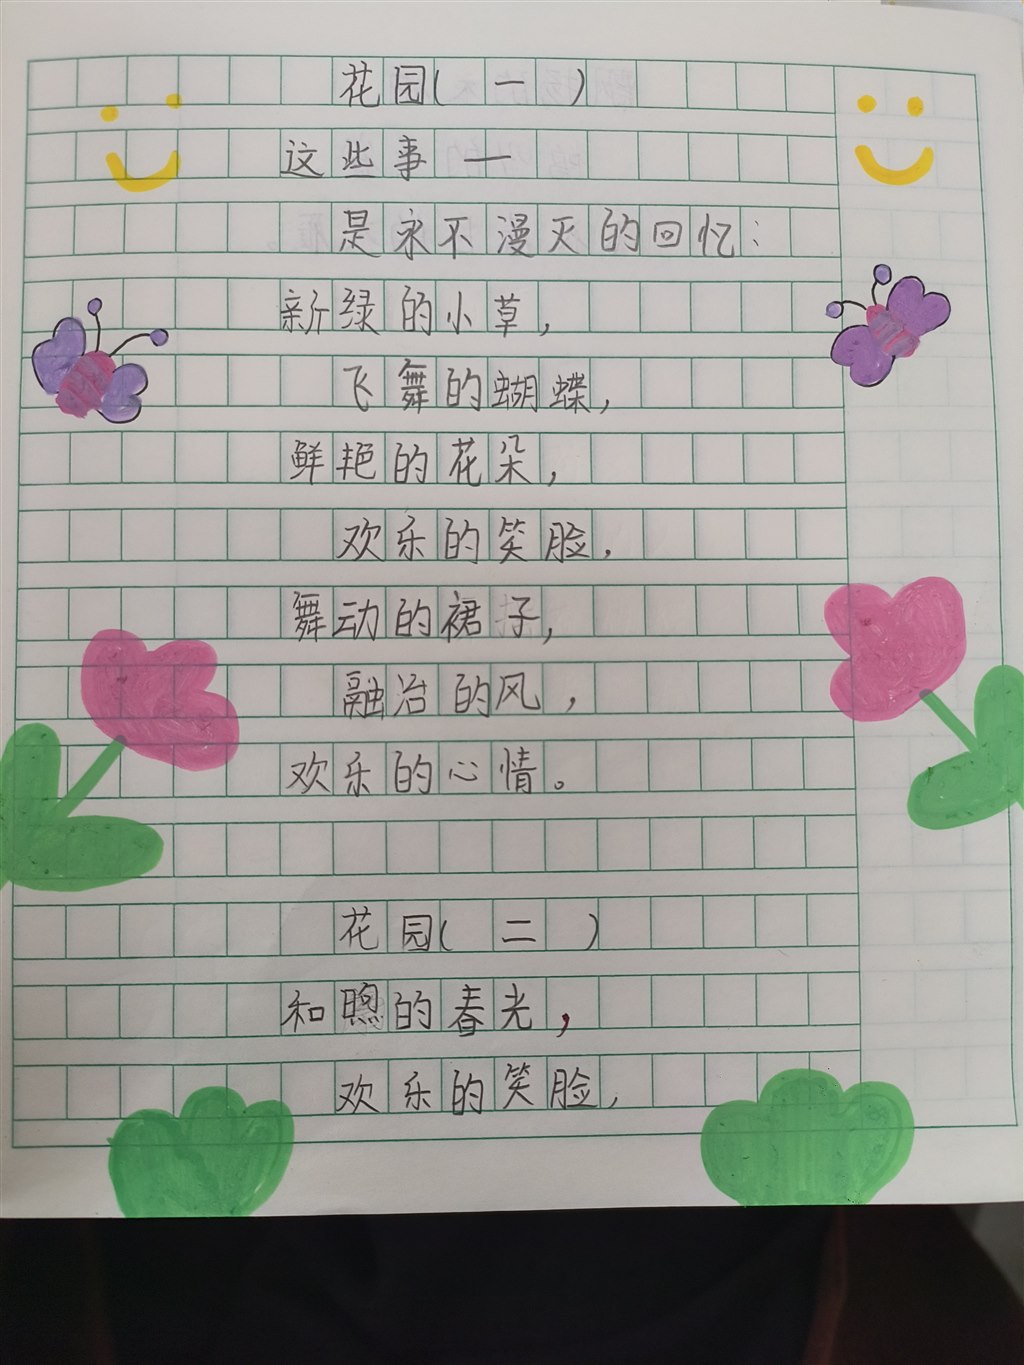 花园(一)
这些事—
是永不漫灭的回忆:
新绿的小草,
飞舞的蝴蝶,
鲜艳的花朵,
欢乐的笑脸,
舞动的裙子,
融洽的风,
欢乐的心情。
花园(二)
和煦的春光,
欢乐的笑脸,